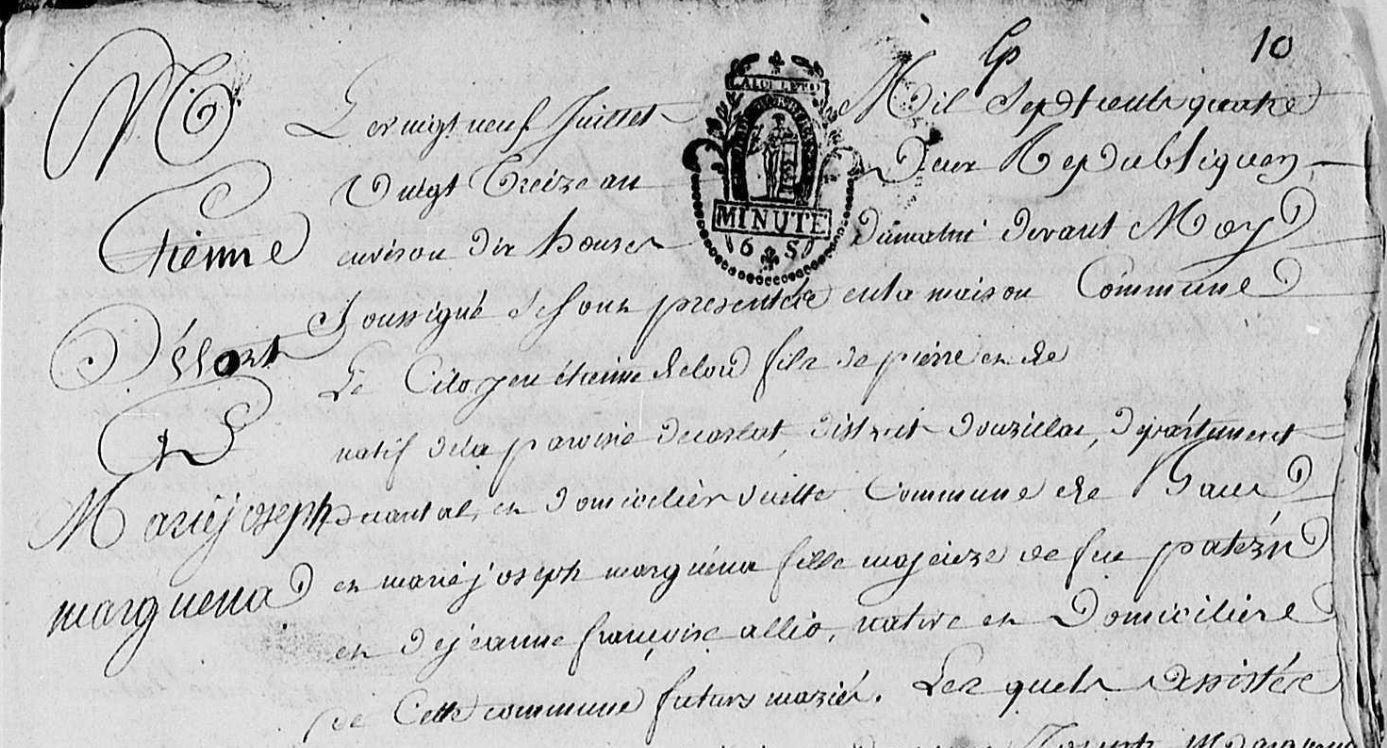 10
M
Etienne
Delort
Et
Marie joseph
marguena
Le vingt neuf Juillet Mil Sept cents quatre
vingt treize an Deux Republiquen,
environ dix heures du matin devant Moy
Soussigné se sont presentés en la maison Commune
Le Citoyen étienne delord fils de pierre et de
natif de la paroisse de carlat, district daurillac, département
du cantal, et domicilier de cette Commune de
et marie joseph marguéna fille majeure de feu patern
et de jeanne françoise allio, native et Domiciliére
de Cette commune futurs mariés. Les quels assistés
MINUTE
6 S